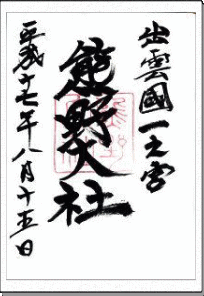 出雲國一之宮
熊野大社
平成十七年八月十五日